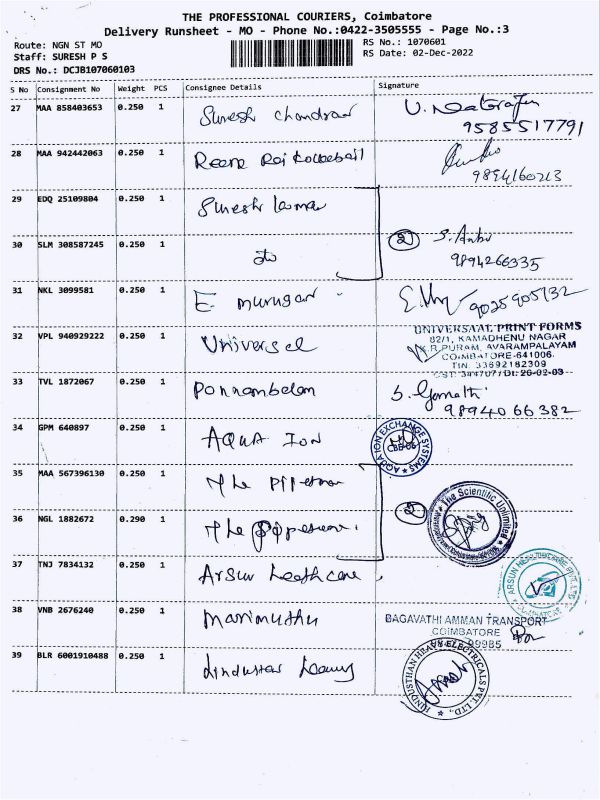 THE PROFESSIONAL COURIERS, Coimbatore
Delivery Runsheet - MO - Phone No.:0422-3505555 - Page No.:3
Route: NGN ST MO RS No.: 1070601
Staff: SURESH P S RS Date: 02-Dec-2022
DRS No.: DCJB107060103
S No Consignment No Weight PCS Consignee Details Signature
27 MAA 858403653 0.250 1 Suresh Chandran
9585517791
28 MAA 942442063 0.250 1
9894160213
29 EDQ 25109804 0.250 1 Suresh Kumar
30 SLM 308587245 0.250 1 do 2 S. Anbu
9894266335
31 NKL 3099581 0.250 1 E. Murugan 9025905732
32 VPL 940929222 0.250 1 Universal UNIVERSAAL PRINT FORMS
82/1, KAMADHENU NAGAR
K.R.PURAM, AVARAMPALAYAM
COIMBATORE-641006.
TIN: 33692182309
33 TVL 1872067 0.250 1 Ponnambalam S. Gomathi
9894066382
34 GPM 640897 0.250 1 AQUA ION AQUAION EXCHANGE SYSTEMS
35 MAA 567396130 0.250 1 The
36 NGL 1882672 0.290 1 The 2 The Scientific Unlimited
37 TNJ 7834132 0.250 1 Arsun heathcare ARSUN HEALTHCARE PVT. LTD.
COIMBATORE
38 VNB 2676240 0.250 1 Marimuthu BAGAVATHI AMMAN TRANSPORT
COIMBATORE
99985
39 BLR 6001910488 0.250 1 Hindustan Heavy HINDUSTHAN HEAVY ELECTRICALS PVT. LTD.,